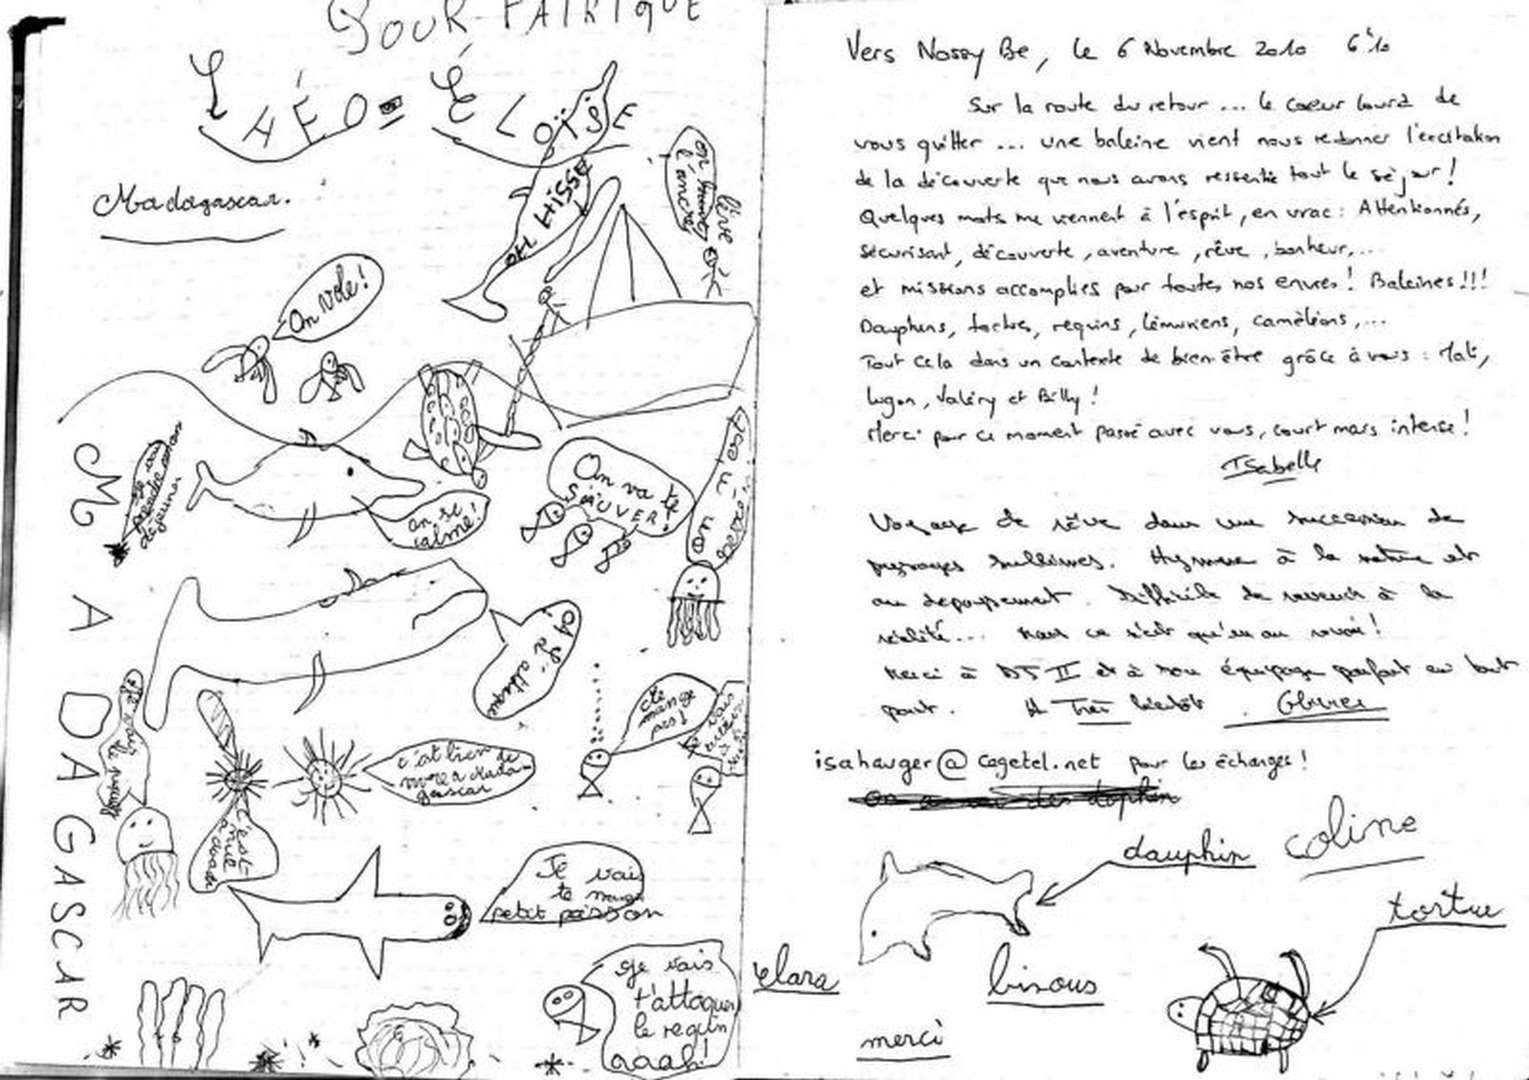 POUR PATRIQUE
THÉO = ÉLOÏSE
Madagascar.
OH HISSE
lève
l'ancre
On vole!
MADAGASCAR
déjeuner
On se
calme!
On va te
SAUVER!
on
attaque
mange
pas!
Je vais
c'est bien de
vivre a Mada-
gascar
c'est
Je vais
te manger
petit poisson
Je vais
t'attaquer
le requin
aaah!
Vers Nossy Be, le 6 Novembre 2010 6h10
Sur la route du retour ... le coeur lourd de
vous quitter ... une baleine vient nous redonner l'excitation
de la découverte que nous avons ressentie tout le séjour!
Quelques mots me viennent à l'esprit, en vrac: Attentionnés,
sécurisant, découverte, aventure, rêve, bonheur,...
et missions accomplies pour toutes nos envies! Baleines!!!
Dauphins, tortues, requins, lémuriens, caméléons,...
Tout cela dans un contexte de bien-être grâce à vous:
Valéry et Billy!
Merci pour ce moment passé avec vous, court mais intense!
Isabelle
Voyage de rêve dans une succession de
paysages sublimes. Hymne à la nature et
au dépaysement. Difficile de revenir à la
réalité... Mais ce n'est qu'un au revoir!
Merci à et à son équipage parfait en tout
point. A Très bientôt.
isahauger@cegetel.net pour les échanges!
dauphin
coline
tortue
clara
bisous
merci